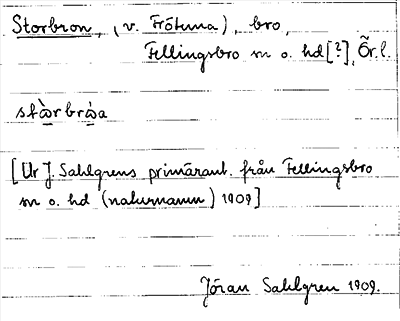 Storbron, (v. Frötuna), bro,
Fellingsbro sn o. hd [?], Ör. l.
stòr bròa
[Ur J. Sahlgrens primärant. från Fellingsbro
sn o. hd (naturnamn) 1909]
Jöran Sahlgren 1909.